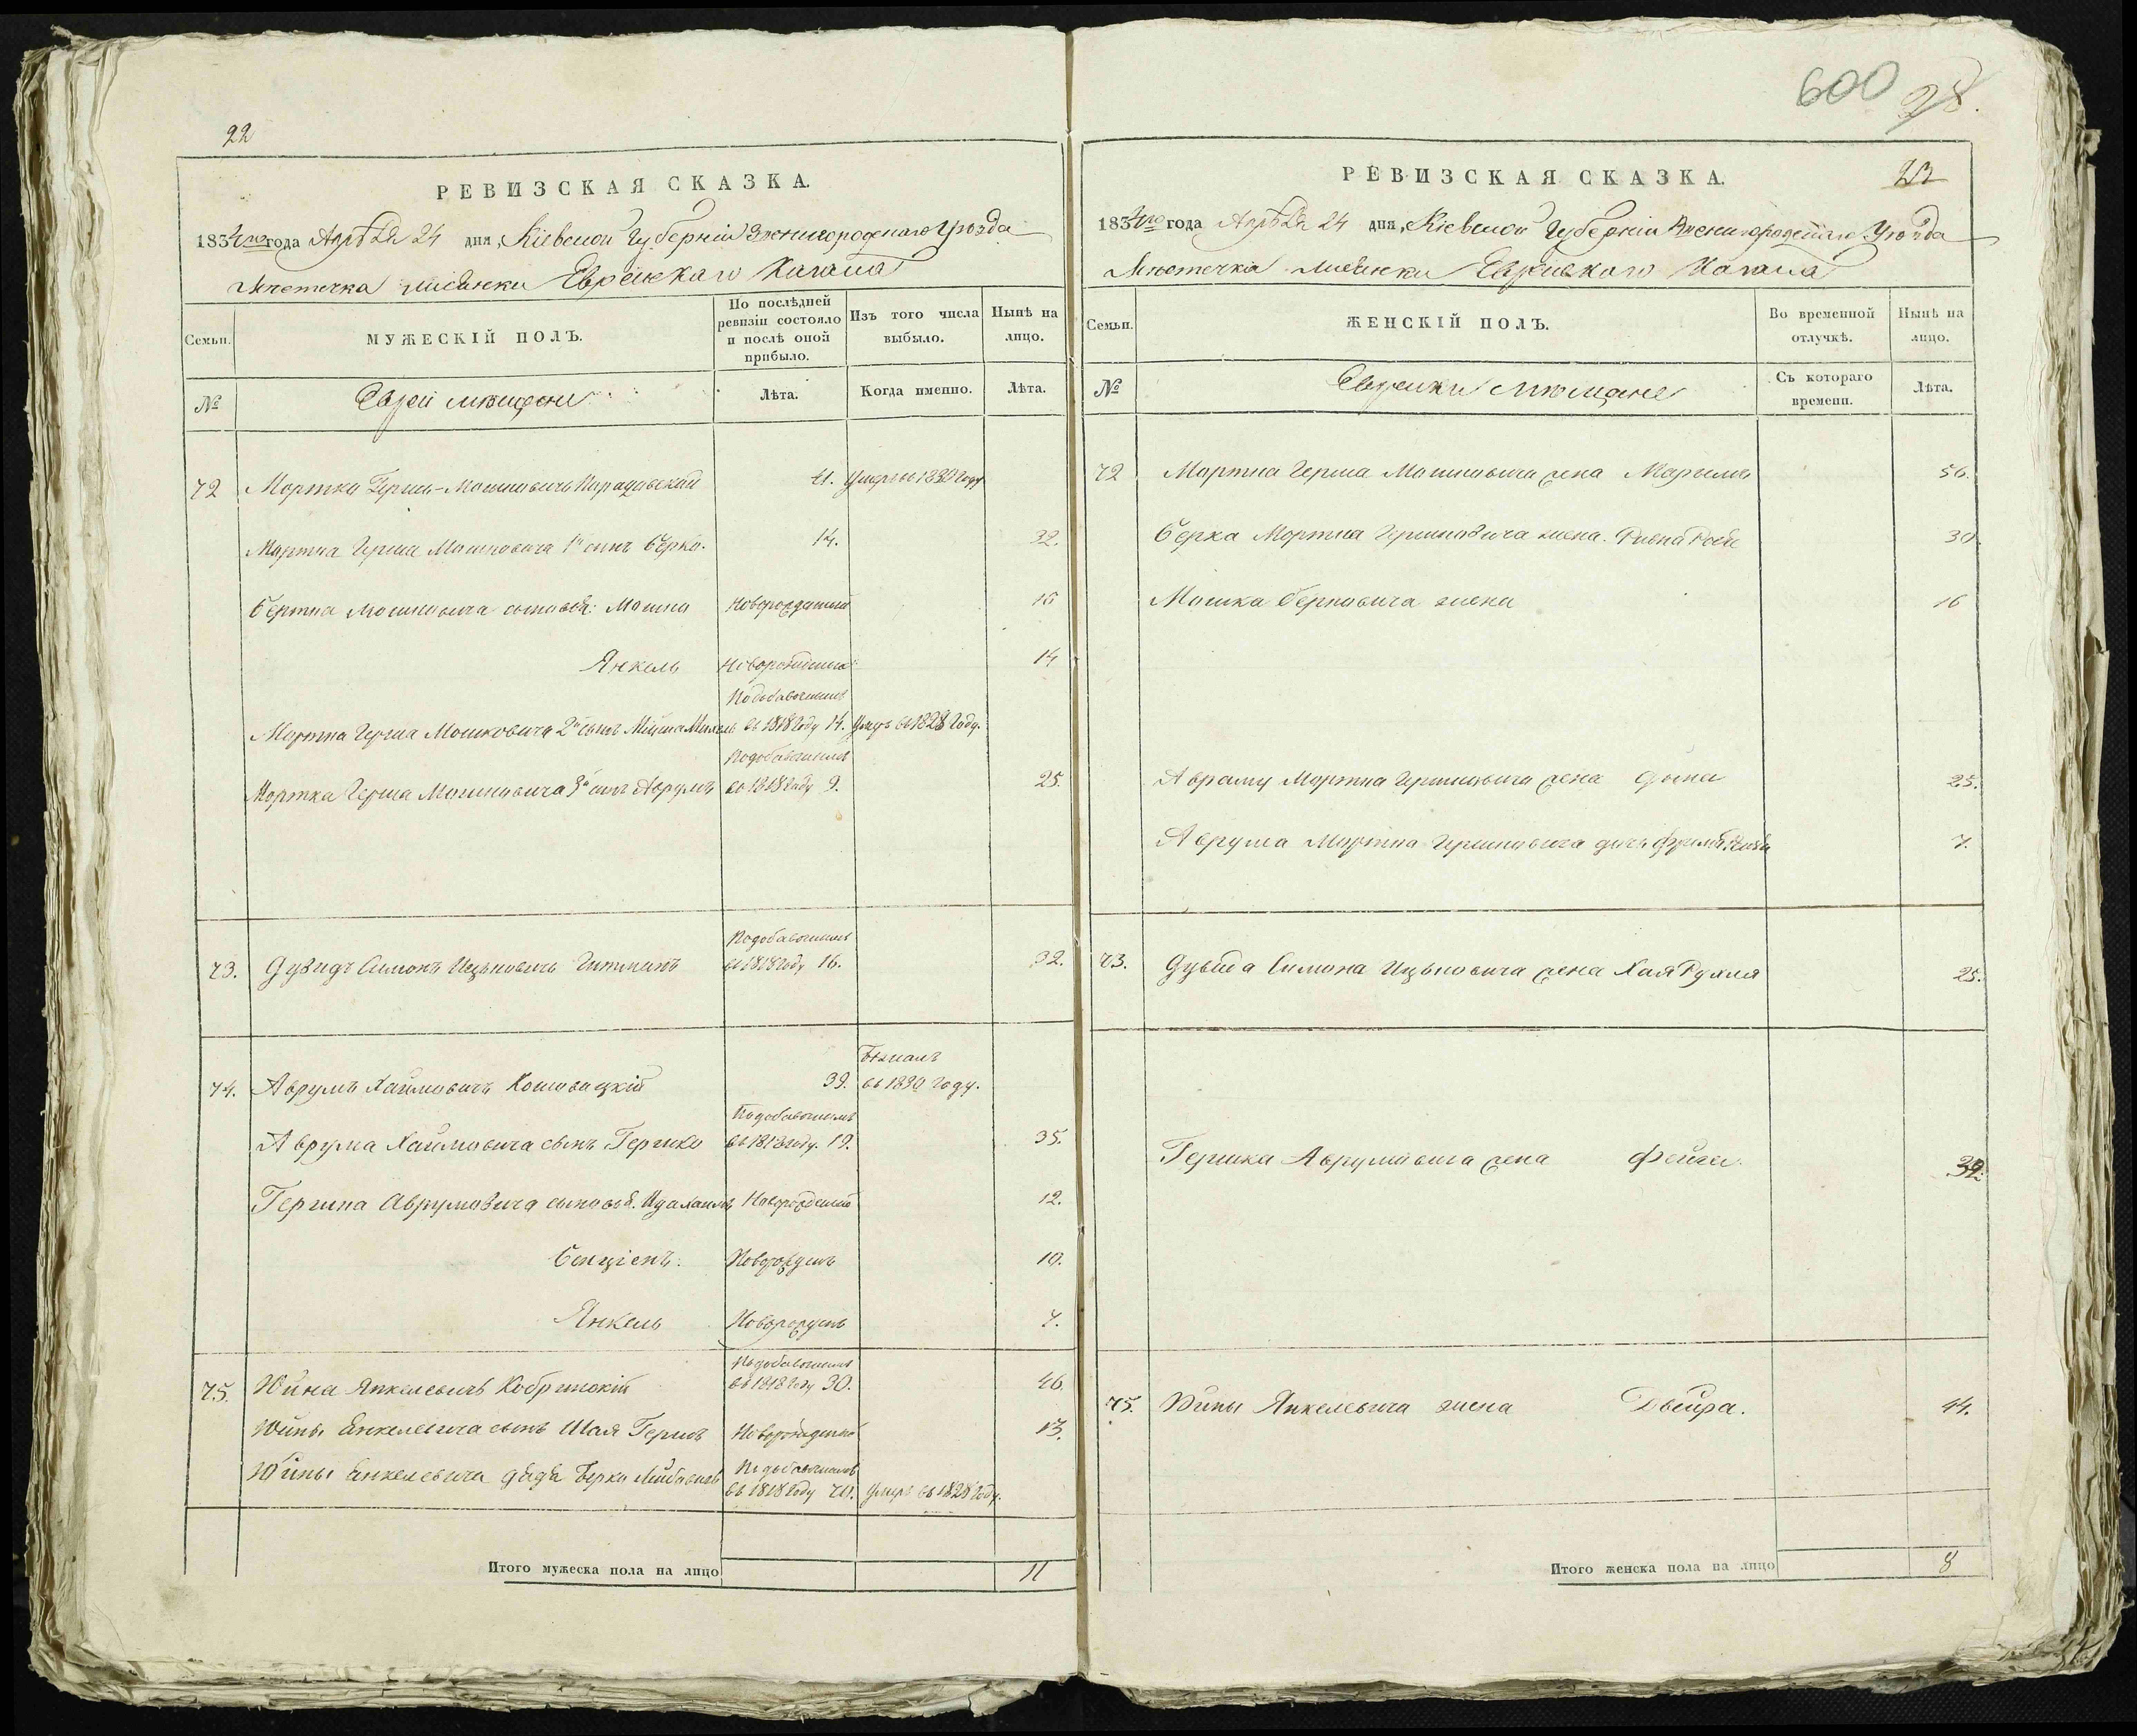 600
28.
22
РЕВИЗСКАЯ СКАЗКА.
1834го года Апрѣля 24 дня, Кіевской Губерніи Звенигородскаго Уѣзда
Мѣстечка Лисянки Еврейскаго Кагала
Семьи.
МУЖЕСКІЙ ПОЛЪ.
По послѣдней ревизіи состояло и послѣ оной прибыло.
Изъ того числа выбыло.
Нынѣ на лицо.
№
Евреи мѣщане
Лѣта.
Когда именно.
Лѣта.
72 Мортко Герш-Мошковичъ 41. Умеръ въ 1830 Году
Мортка Герша Мошковича 1й сынъ Берко. 14. 32.
Берка сыновья: Мошко Новорожденный 16
Янкель Новорожденный 14
Подобавочнымъ
Мортка Герша Мошковича 2й сынъ въ 1818 Году 14. Умеръ въ 1828 Году.
Подобавочнымъ
Мортка Герша Мошковича 3й сынъ Аврумъ въ 1818 Году 9. 25.
Подобавочнымъ
73. Дувидъ Симонъ Ицковичъ въ 1818 Году 16. 32.
74. Аврумъ Хаимовичъ 39. въ 1830 Году.
Подобавочнымъ
Аврума Хаимовича сынъ Гершко въ 1818 году. 19. 35.
Гершка Аврумовича сыновья. Новорожденный 12.
Бенціенъ. Новорожденъ 10.
Янкель Новорожденъ 7.
Подобавочнымъ
75. Юйна Янкелевичъ Кобринскій въ 1818 Году 30. 46.
Юйны Енкелевича сынъ Шая Гершъ Новорожденный 13.
Подобавочнымъ
Юйны Енкелевича дядя Берко въ 1818 Году Умеръ въ 1828 Году.
Итого мужеска пола на лицо 11
РЕВИЗСКАЯ СКАЗКА. 23
1834го года Апрѣля 24 дня, Кіевской Губерніи Звенигородскаго Уѣзда
Мѣстечка Лисянки Еврейскаго Кагала
Семьи.
ЖЕНСКІЙ ПОЛЪ.
Во временной отлучкѣ.
Нынѣ на лицо.
№
Еврейки мѣщане
Съ котораго времени.
Лѣта.
72 Мортка Герша Мошковича жена 56.
Берка Мортка Гершковича жена. 30.
Мошка Берковича жена 16
Аврума Мортка Гершковича жена 25.
Аврума Мортка Гершковича дочь 7.
73. Дувида Симона Ицковича жена Хая 25.
Гершка Аврумовича жена Фейга. 32.
75. Юйны Янкелевича жена Двейра. 44.
Итого женска пола на лицо 8